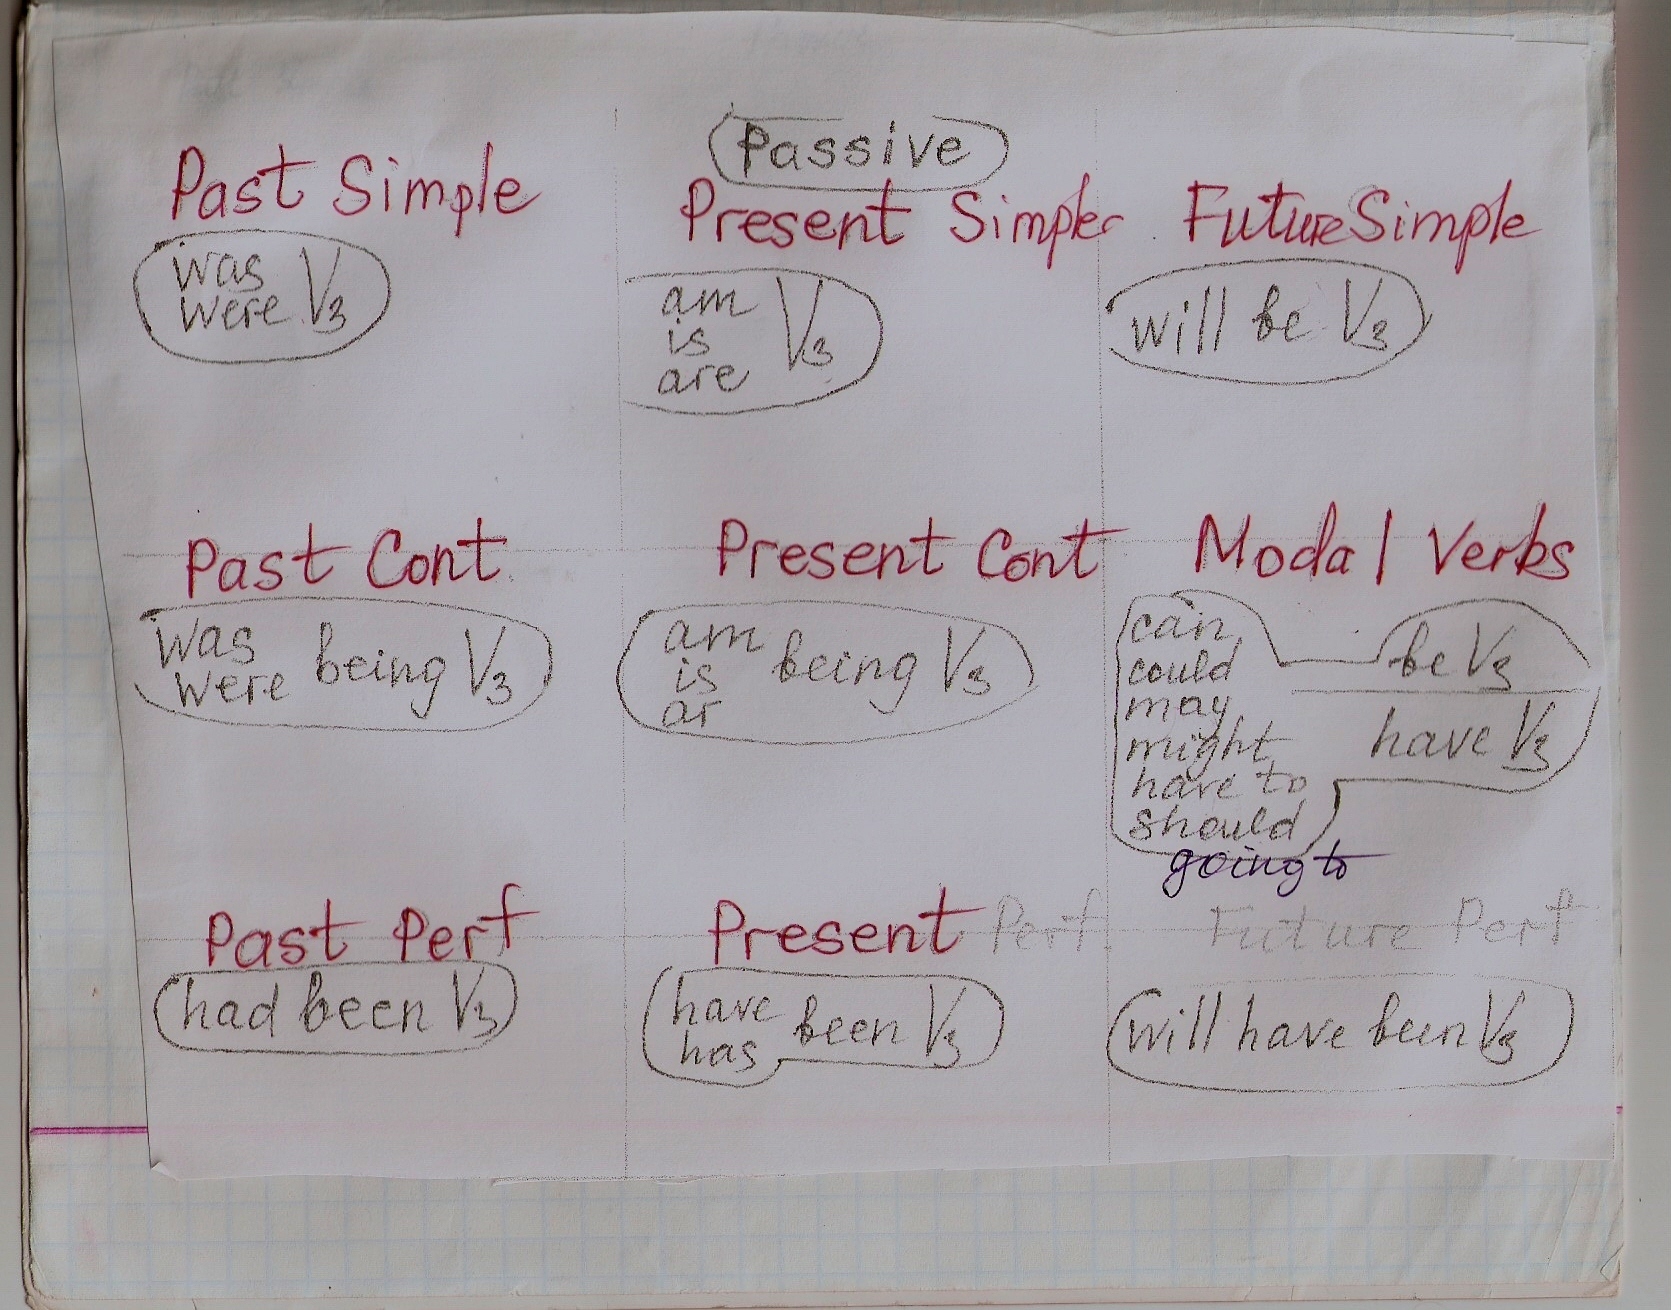 Passive
Past Simple
was
were V3
Present Simple
am
is
are V3
Future Simple
will be V3
Past Cont
was
were being V3
Present Cont
am
is
ar being V3
Modal Verbs
can
could
may
might
have to
should
going to
be V3
have V3
Past Perf
had been V3
Present Perf
have
has been V3
Future Perf
will have been V3